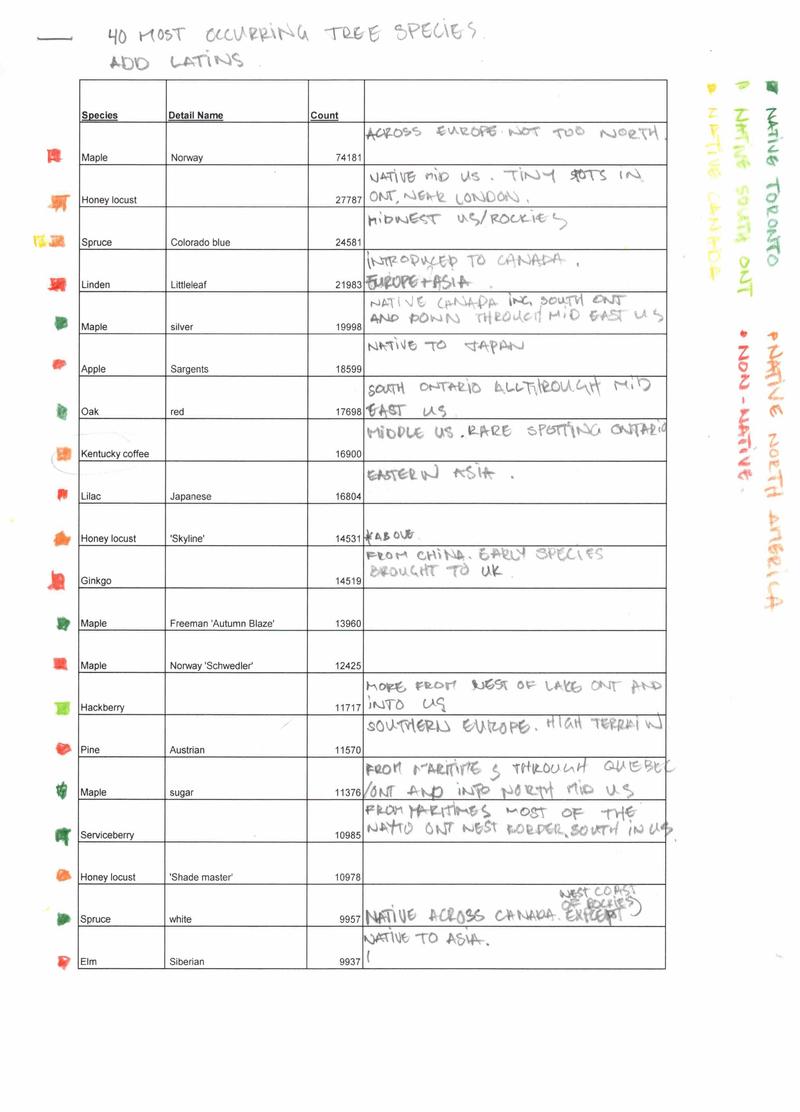 40 MOST OCCURRING TREE SPECIES.
ADD LATINS.
Species Detail Name Count
ACROSS EUROPE. NOT TOO NORTH.
Maple Norway 74181
NATIVE MID US. TINY SPOTS IN
Honey locust 27787 ONT, NEAR LONDON.
MIDWEST US/ROCKIES
Spruce Colorado blue 24581
INTRODUCED TO CANADA.
Linden Littleleaf 21983 EUROPE+ASIA
NATIVE CANADA INC SOUTH ONT
Maple silver 19998 AND DOWN THROUGH MID EAST US
NATIVE TO JAPAN
Apple Sargents 18599
SOUTH ONTARIO ALL THROUGH MID
Oak red 17698 EAST US
MIDDLE US. RARE SPOTTING ONTARIO
Kentucky coffee 16900
EASTERN ASIA.
Lilac Japanese 16804
Honey locust 'Skyline' 14531 *ABOVE
FROM CHINA. EARLY SPECIES
BROUGHT TO UK
Ginkgo 14519
Maple Freeman 'Autumn Blaze' 13960
Maple Norway 'Schwedler' 12425
MORE FROM WEST OF LAKE ONT AND
Hackberry 11717 INTO US
SOUTHERN EUROPE. HIGH TERRAIN
Pine Austrian 11570
FROM MARITIMES THROUGH QUEBEC
Maple sugar 11376 /ONT AND INTO NORTH MID US
FROM MARITIMES MOST OF THE
Serviceberry 10985 ONT WEST BORDER, SOUTH IN US
Honey locust 'Shade master' 10978
WEST COAST
OF ROCKIES)
Spruce white 9957 NATIVE ACROSS CANADA. EXCEPT
NATIVE TO ASIA.
Elm Siberian 9937
NATIVE TORONTO
NATIVE SOUTH ONT
NATIVE CANADA
NATIVE NORTH AMERICA
NON-NATIVE.